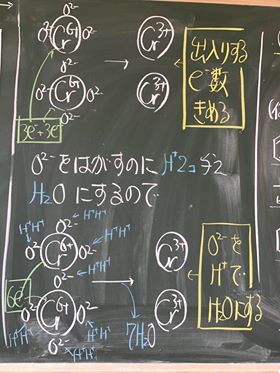 O²⁻
O²⁻ Cr⁶⁺ O²⁻
O²⁻
O²⁻ Cr⁶⁺ O²⁻
O²⁻
3e⁻+3e⁻
→
Cr³⁺
Cr³⁺
出入りする
e⁻数
きめる
O²⁻をはがすのにH⁺2コずつ
H₂Oにするので
O²⁻ H⁺H⁺
H⁺H⁺
O²⁻ Cr⁶⁺ O²⁻ H⁺H⁺
O²⁻ H⁺H⁺
6e⁻
O²⁻ Cr⁶⁺ O²⁻
H⁺H⁺ H⁺H⁺
O²⁻ H⁺H⁺
→
7H₂O
Cr³⁺
Cr³⁺
O²⁻を
H⁺で
H₂Oにする